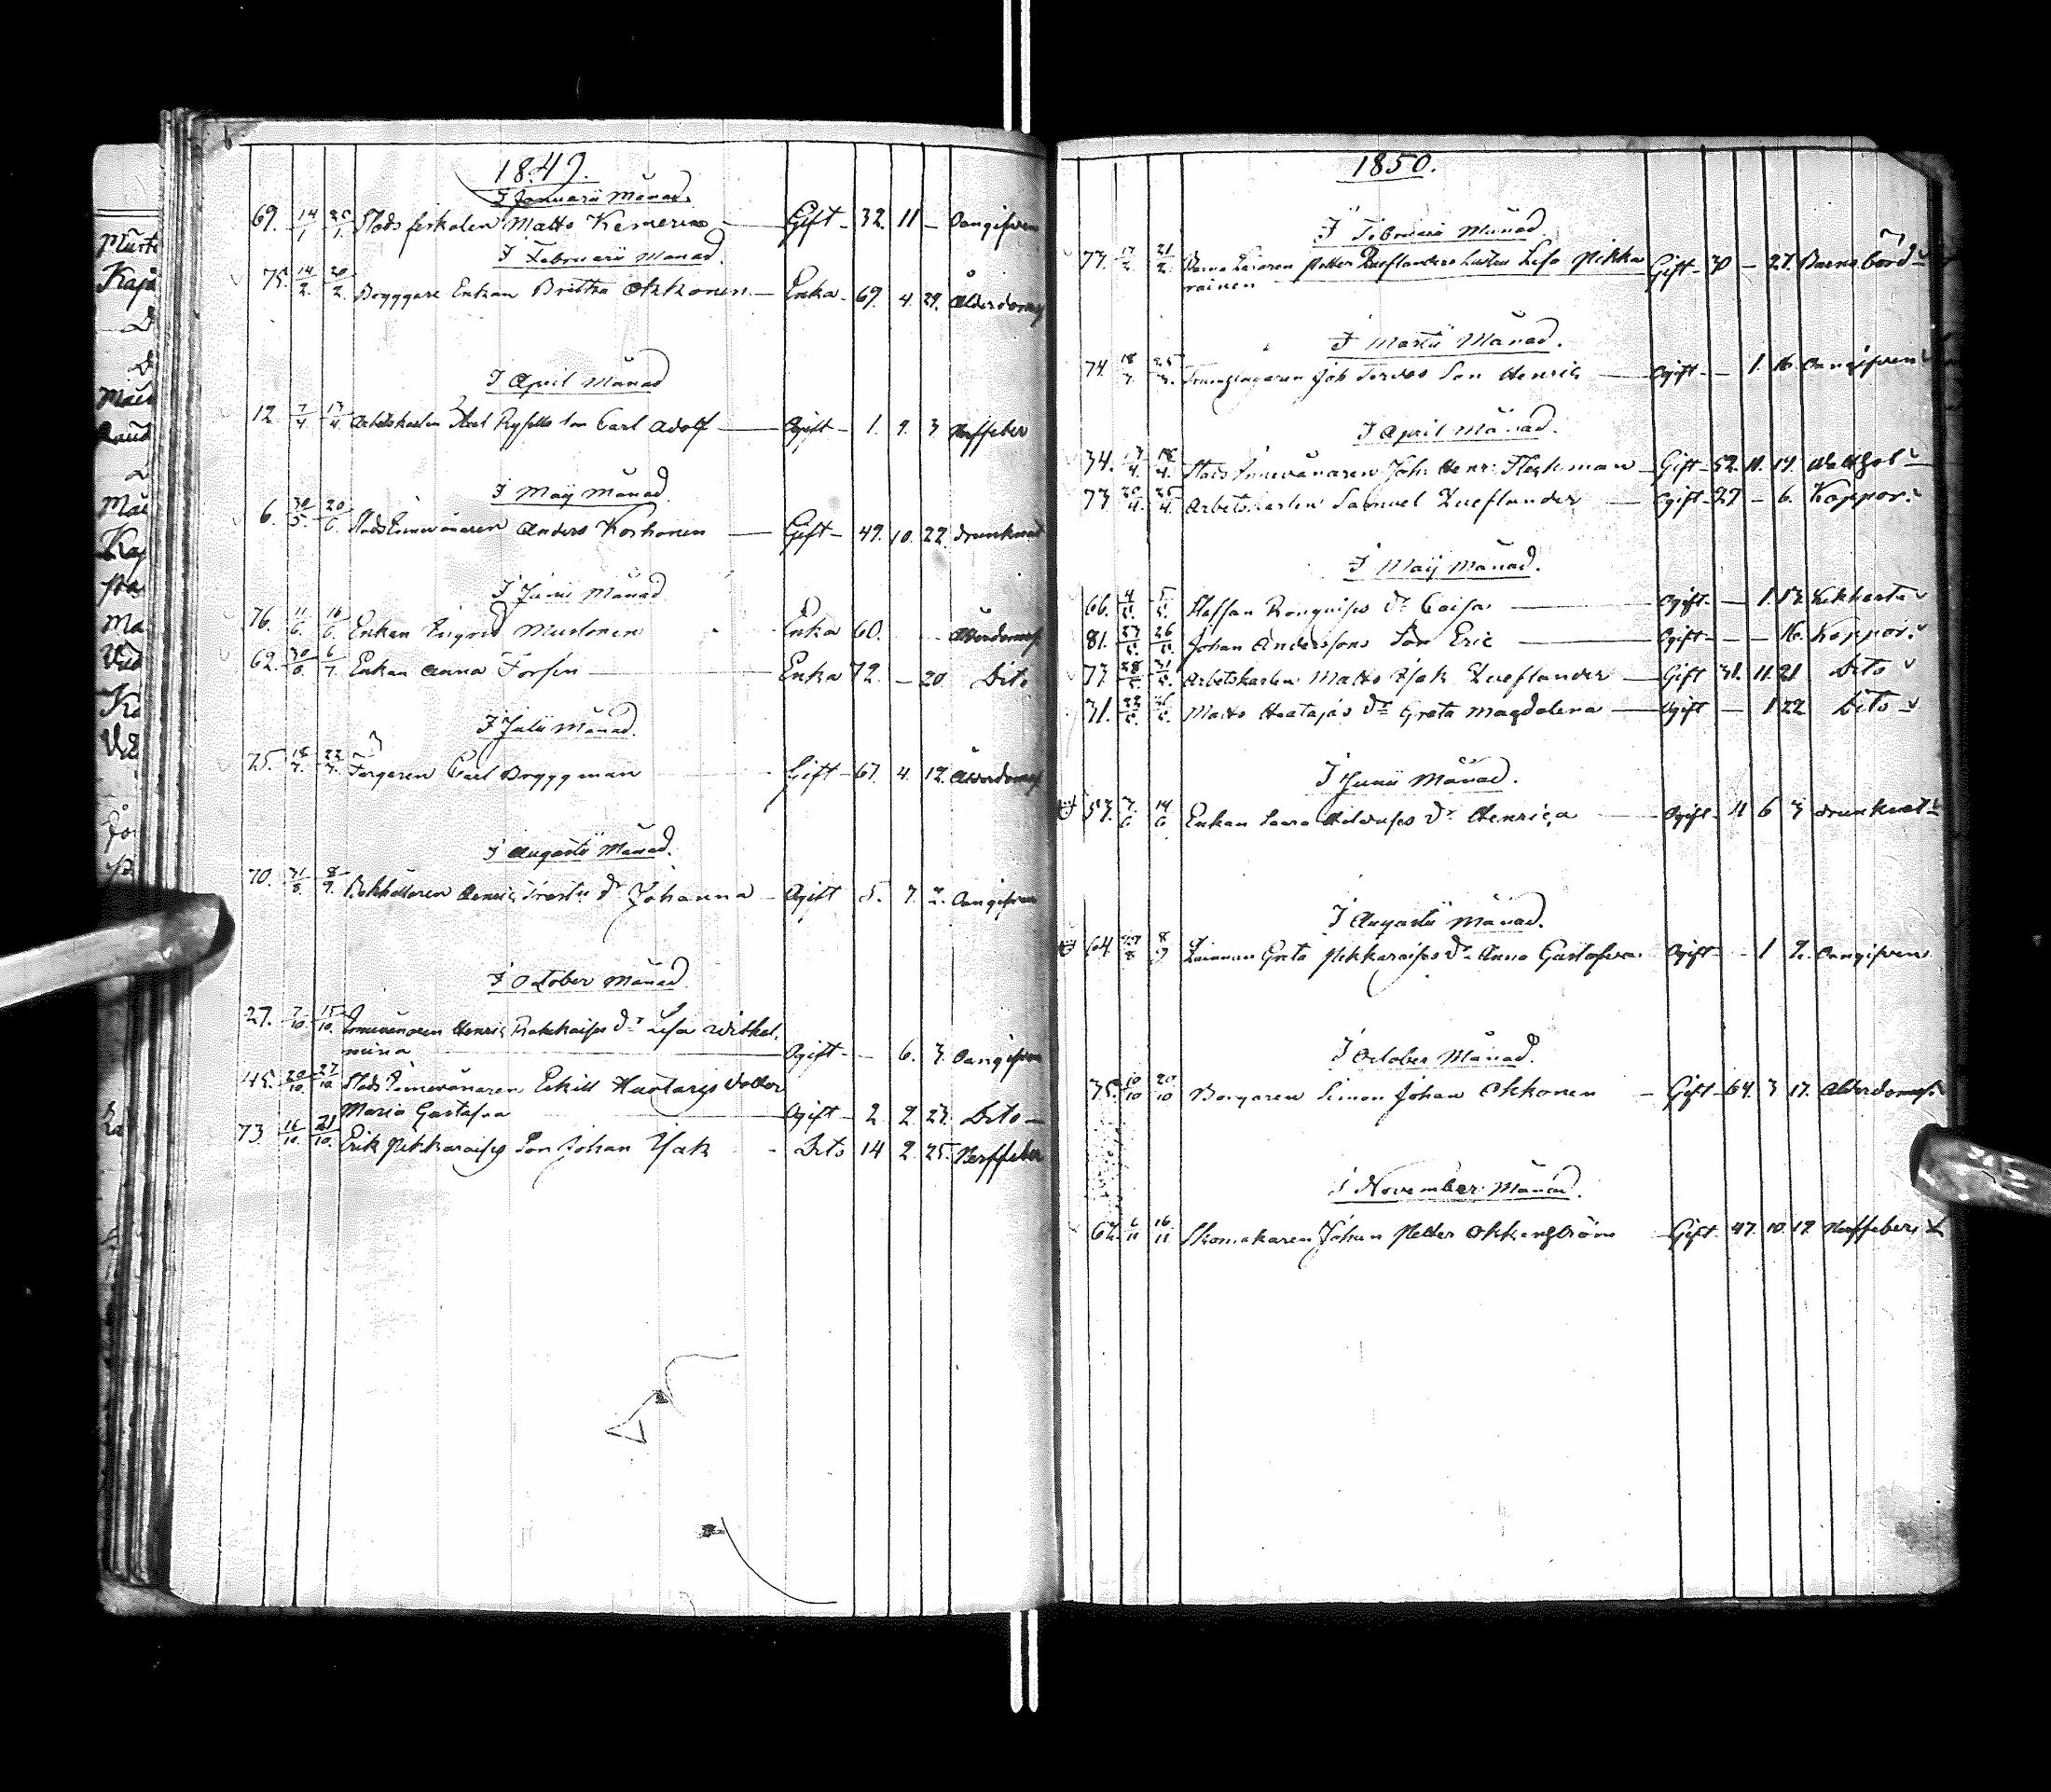 1849.
I Januarii Månad.
69. 14/1 Stads fiskalen Matts Kemerin — Gift - 32. 11 - Oangifven
I Februarii Månad.
75. 14/2. 20/2. Bryggare Enkan Britha Okkonen. — Enka - 69. 4. 29. Ålderdomsf
I April Månad
12. 7/4 13/4 Arbetskarlen son Carl Adolf — Ogift - 1. 9. 3 Nerffeber
I Maij Månad.
6. 30/5. 20/6. Stads Innevånaren Anders Korhonen — Gift - 49. 10. 22. Drunknad
I Junii Månad
76. 11/6. 16/6. Enkan Ingrid Mustonen - Enka 60. - - Ålderdomsf
62. 30/6. 6/7. Enkan Anna Forsen — Enka 72. - 20 Dito
I Julii Månad.
75. 18/7. 22/7. Färgeren Carl Bryggman - Gift - 67. 4. 12. Ålderdomsf
I Augustii Månad.
70. 31/8. 8/9. Bokhållaren Henric dr Johanna - Ogift 5. 7. 2. Oangifven
I October Månad.
27. 7/10. 15/10. Innevånaren Henric dr Lisa Wilhel-
mina — Ogift - - 6. 3. Oangifven
45. 20/10. 27/10. Stads Innevånaren Eskill Huotaris dotter
Maria Gustafva — Ogift - 2 2. 23. Dito -
73. 16/10. 21/10. Erik Pikkaraises Son Johan Isak - Dito 14 2. 25. Nerffeber
1850.
I Februarii Månad.
77. 17/2. 21/2. Petter Zueflanders hustru Lisa Pikka
rainen Gift - 30 - 27. Barnsbörd
I Martii Månad.
74. 18/3. 25/3. Son Henric — Ogift - - 1. 16. Oangifven
I April Månad.
34. 13/4. 18/4. Stads Innevånaren Joh: Henr: Fleckman - Gift - 52. 11. 19. Wattsot
73 20/4. 25/4. Arbetskarlen Samuel Zueflander — Ogift - 27 - 6. Koppor.
I Maij Månad.
66. 4/5. 5/5. Staffan Ronguises dr Caisa — Ogift - - 1. 13. Kikhosta
81. 23/5. 26/5. Johan Anderssons Son Eric — Ogift - - - 16. Koppor.
77 28/5. 31/5. Arbetskarlen Matts Isak Zueflander — Gift 31. 11. 21 Dito
31. 22/5. 26/5. Matts Huatajas dr Greta Magdalena — Ogift - - 1 22 Dito
I Junii Månad.
53. 7/6 14/6 Enkan dr Henrica — Ogift - 11 6 3 drunknat
I Augustii Månad.
64 8/9 Greta Pikkaraises dr Anna Gustafva. Ogift - - 1 2. Oangifven
I October Månad.
75. 10/10 20/10 Borgaren Simon Johan Okkonen - Gift - 64. 3 17. Ålderdomsf.
I November Månad.
62. 6/11 16/11 Skomakaren Johan Petter Okkengström - Gift. 47. 10. 12. Nerffeber